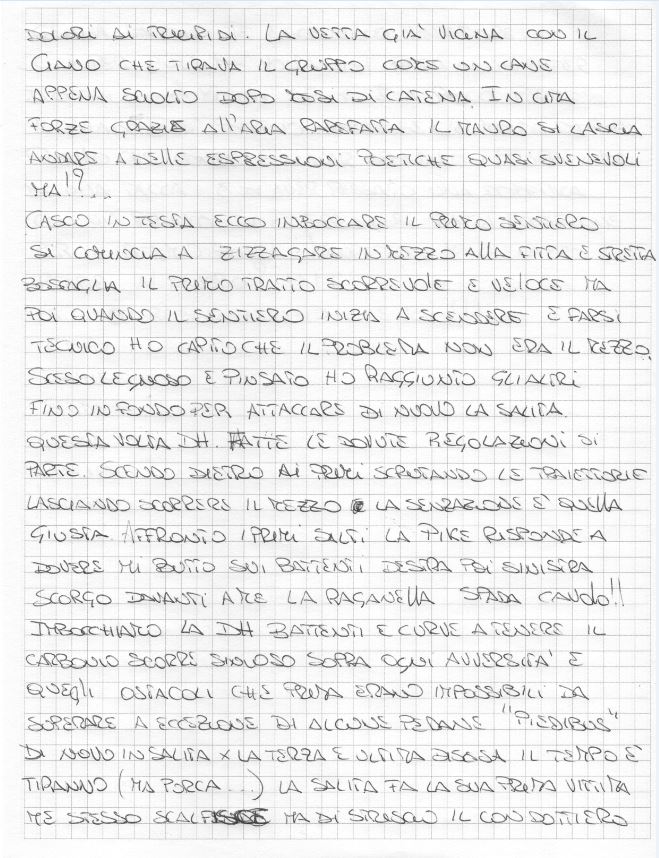 DOLORI AI TRICIPIDI. LA VETTA GIÀ VICINA CON IL
CIANO CHE TIRAVA IL GRUPPO COME UN CANE
APPENA SCIOLTO DOPO MESI DI CATENA. IN CIMA
FORZE GRAZIE All'ARIA RAREFATTA IL MAURO SI LASCIA
ANDARE A DELLE ESPRESSIONI POETICHE QUASI SVENEVOLI
MA!?....
CASCO IN TESTA ECCO INBOCCARE IL PRIMO SENTIERO
SI COMINCIA A ZIZZAGARE IN MEZZO ALLA FITTA E STRETTA
BOSCAGLIA IL PRIMO TRATTO SCORREVOLE E VELOCE MA
POI QUANDO IL SENTIERO INIZIA A SCENDERE E FARSI
TECNICO HO CAPITO CHE IL PROBLEMA NON ERA IL MEZZO.
SCESO LEGNOSO E PINSATO HO RAGGIUNTO GLI ALTRI
FINO IN FONDO PER ATTACCARE DI NUOVO LA SALITA.
QUESTA VOLTA DH. FATTE LE DOVUTE REGOLAZIONI SI
PARTE. SCENDO DIETRO AI PRIMI SCRUTANDO LE TRAIETTORIE
LASCIANDO SCORRERE IL MEZZO LA SENZAZIONE È QUELLA
GIUSTA AFFRONTO I PRIMI SALTI LA PIKE RISPONDE A
DOVERE MI BUTTO SUI BATTENTI DESTRA POI SINISTRA
SCORGO DAVANTI A ME LA RAGANELLA SPADA CAUDO!!
IMBOCCHIAMO LA DH BATTENTI E CURVE A TENERE IL
CARBONIO SCORRE SINUOSO SOPRA OGNI AVVERSITÀ E
QUEGLI OSTACOLI CHE PRIMA ERANO IMPOSSIBILI DA
SUPERARE A ECCEZIONE DI ALCUNE PEDANE "PIEDIBUS"
DI NUOVO IN SALITA X LA TERZA E ULTIMA DISCESA IL TEMPO È
TIRANNO (MA PORCA ...) LA SALITA FA LA SUA PRIMA VITTIMA
ME STESSO MA DI STRISCIO IL CONDOTTIERO